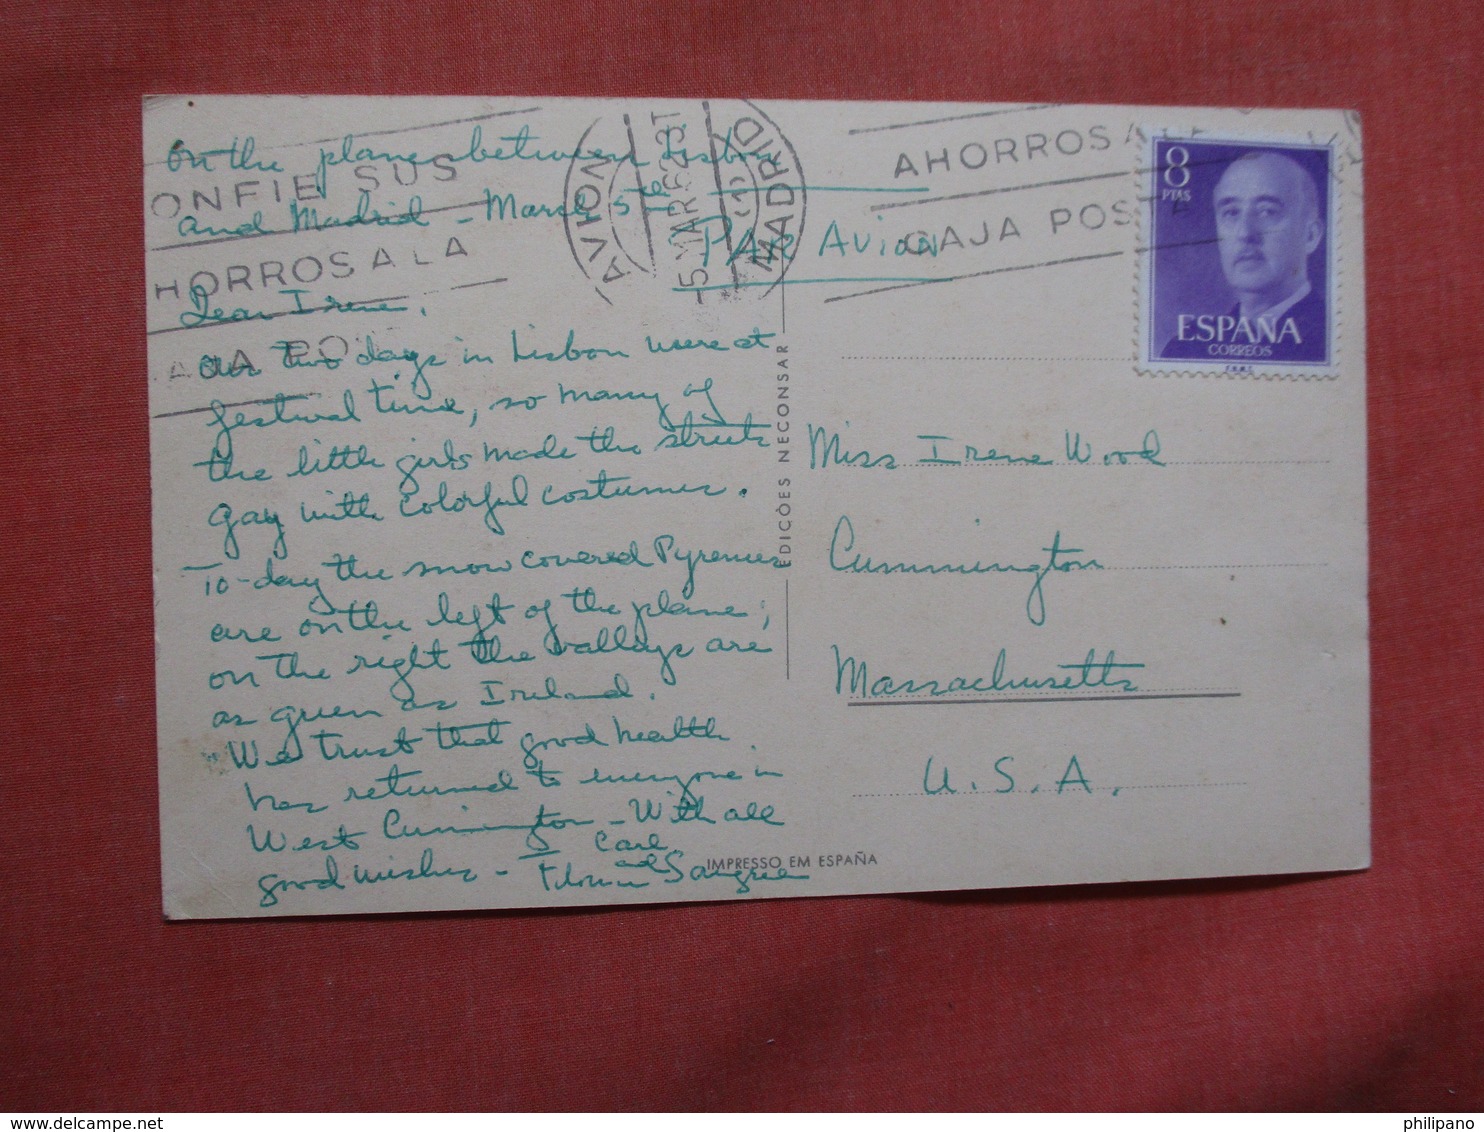 On the plane between Lisbon
and Madrid - March 5th
Dear Irene,
Our two days in Lisbon were at
festival time, so many of
the little girls made the streets
gay with colorful costumes.
To-day the snow covered Pyrenees
are on the left of the plane;
on the right the valleys are
as green as Ireland.
We trust that good health
has returned to everyone in
West Cummington - With all
good wishes - Carl
and
CONFIE SUS
AHORROS A LA
CAJA POSTAL
AVION
5 MAR 62
(1)
MADRID
AHORROS A LA
CAJA POSTAL
PAR AVION
8
PTAS
ESPAÑA
CORREOS
F.N.M.T.
Miss Irene Wood
Cummington
Massachusetts
U. S. A.
EDIÇÕES NECONSAR
IMPRESSO EM ESPAÑA
www.delcampe.net
philipano